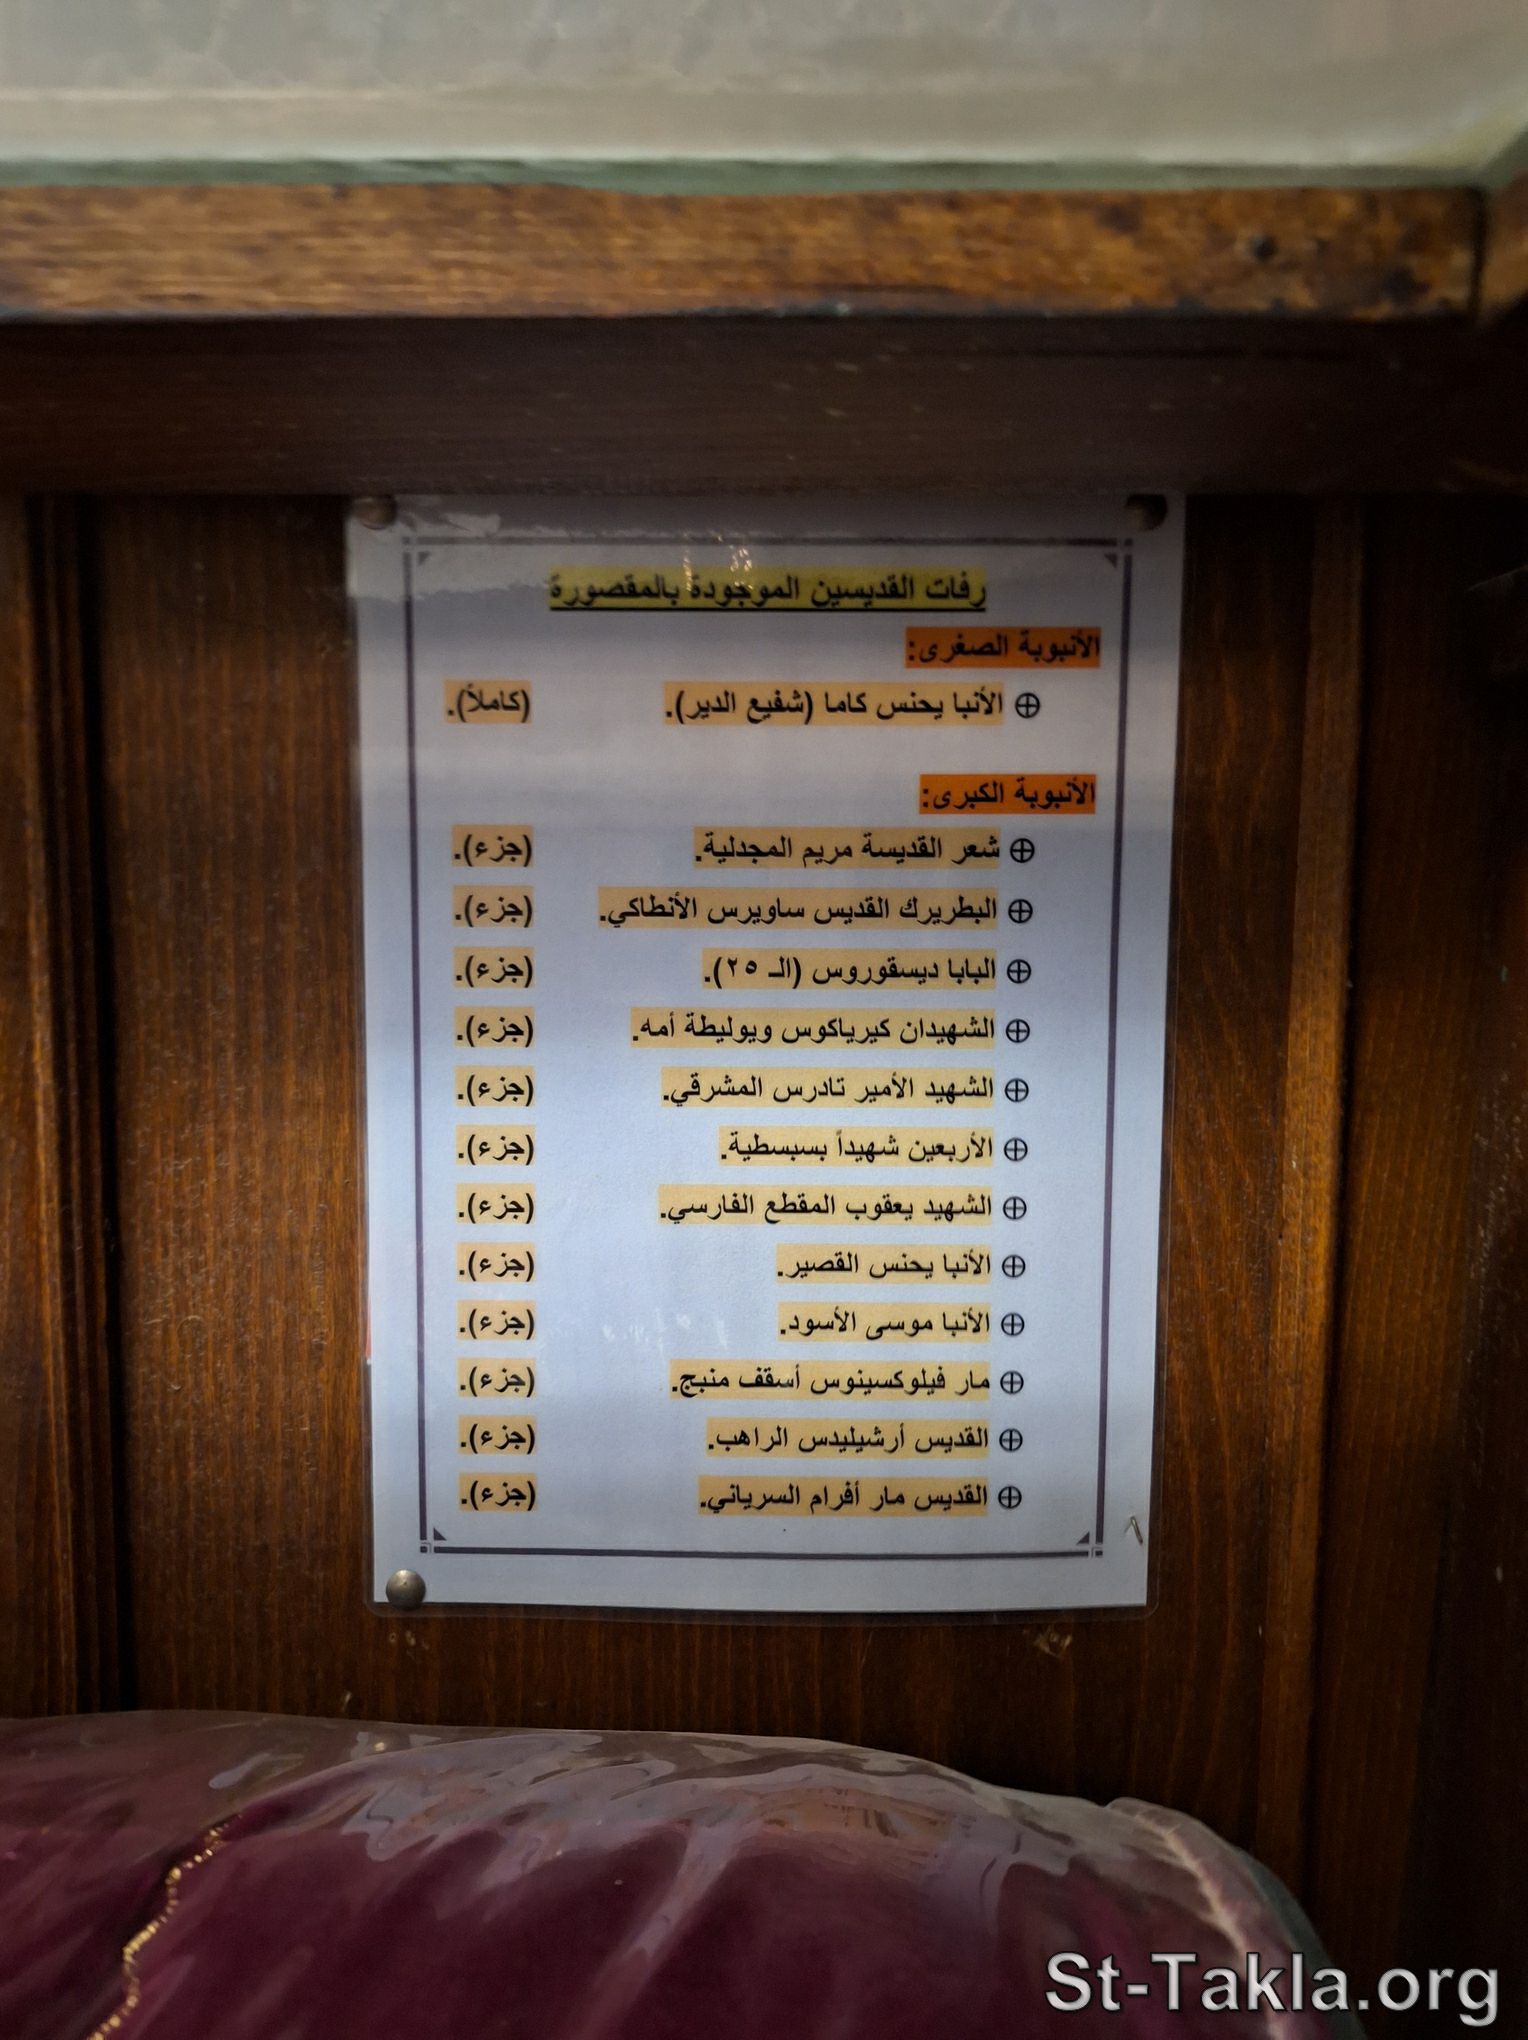 رفات القديسين الموجودة بالمقصورة
الأنبوبة الصغرى:
⊕ الأنبا يحنس كاما (شفيع الدير). (كاملاً).
الأنبوبة الكبرى:
⊕ شعر القديسة مريم المجدلية. (جزء).
⊕ البطريرك القديس ساويرس الأنطاكي. (جزء).
⊕ البابا ديسقوروس (الـ ٢٥). (جزء).
⊕ الشهيدان كيرياكوس ويوليطة أمه. (جزء).
⊕ الشهيد الأمير تادرس المشرقي. (جزء).
⊕ الأربعين شهيداً بسبسطية. (جزء).
⊕ الشهيد يعقوب المقطع الفارسي. (جزء).
⊕ الأنبا يحنس القصير. (جزء).
⊕ الأنبا موسى الأسود. (جزء).
⊕ مار فيلوكسينوس أسقف منبج. (جزء).
⊕ القديس أرشيليدس الراهب. (جزء).
⊕ القديس مار أفرام السرياني. (جزء).
St-Takla.org